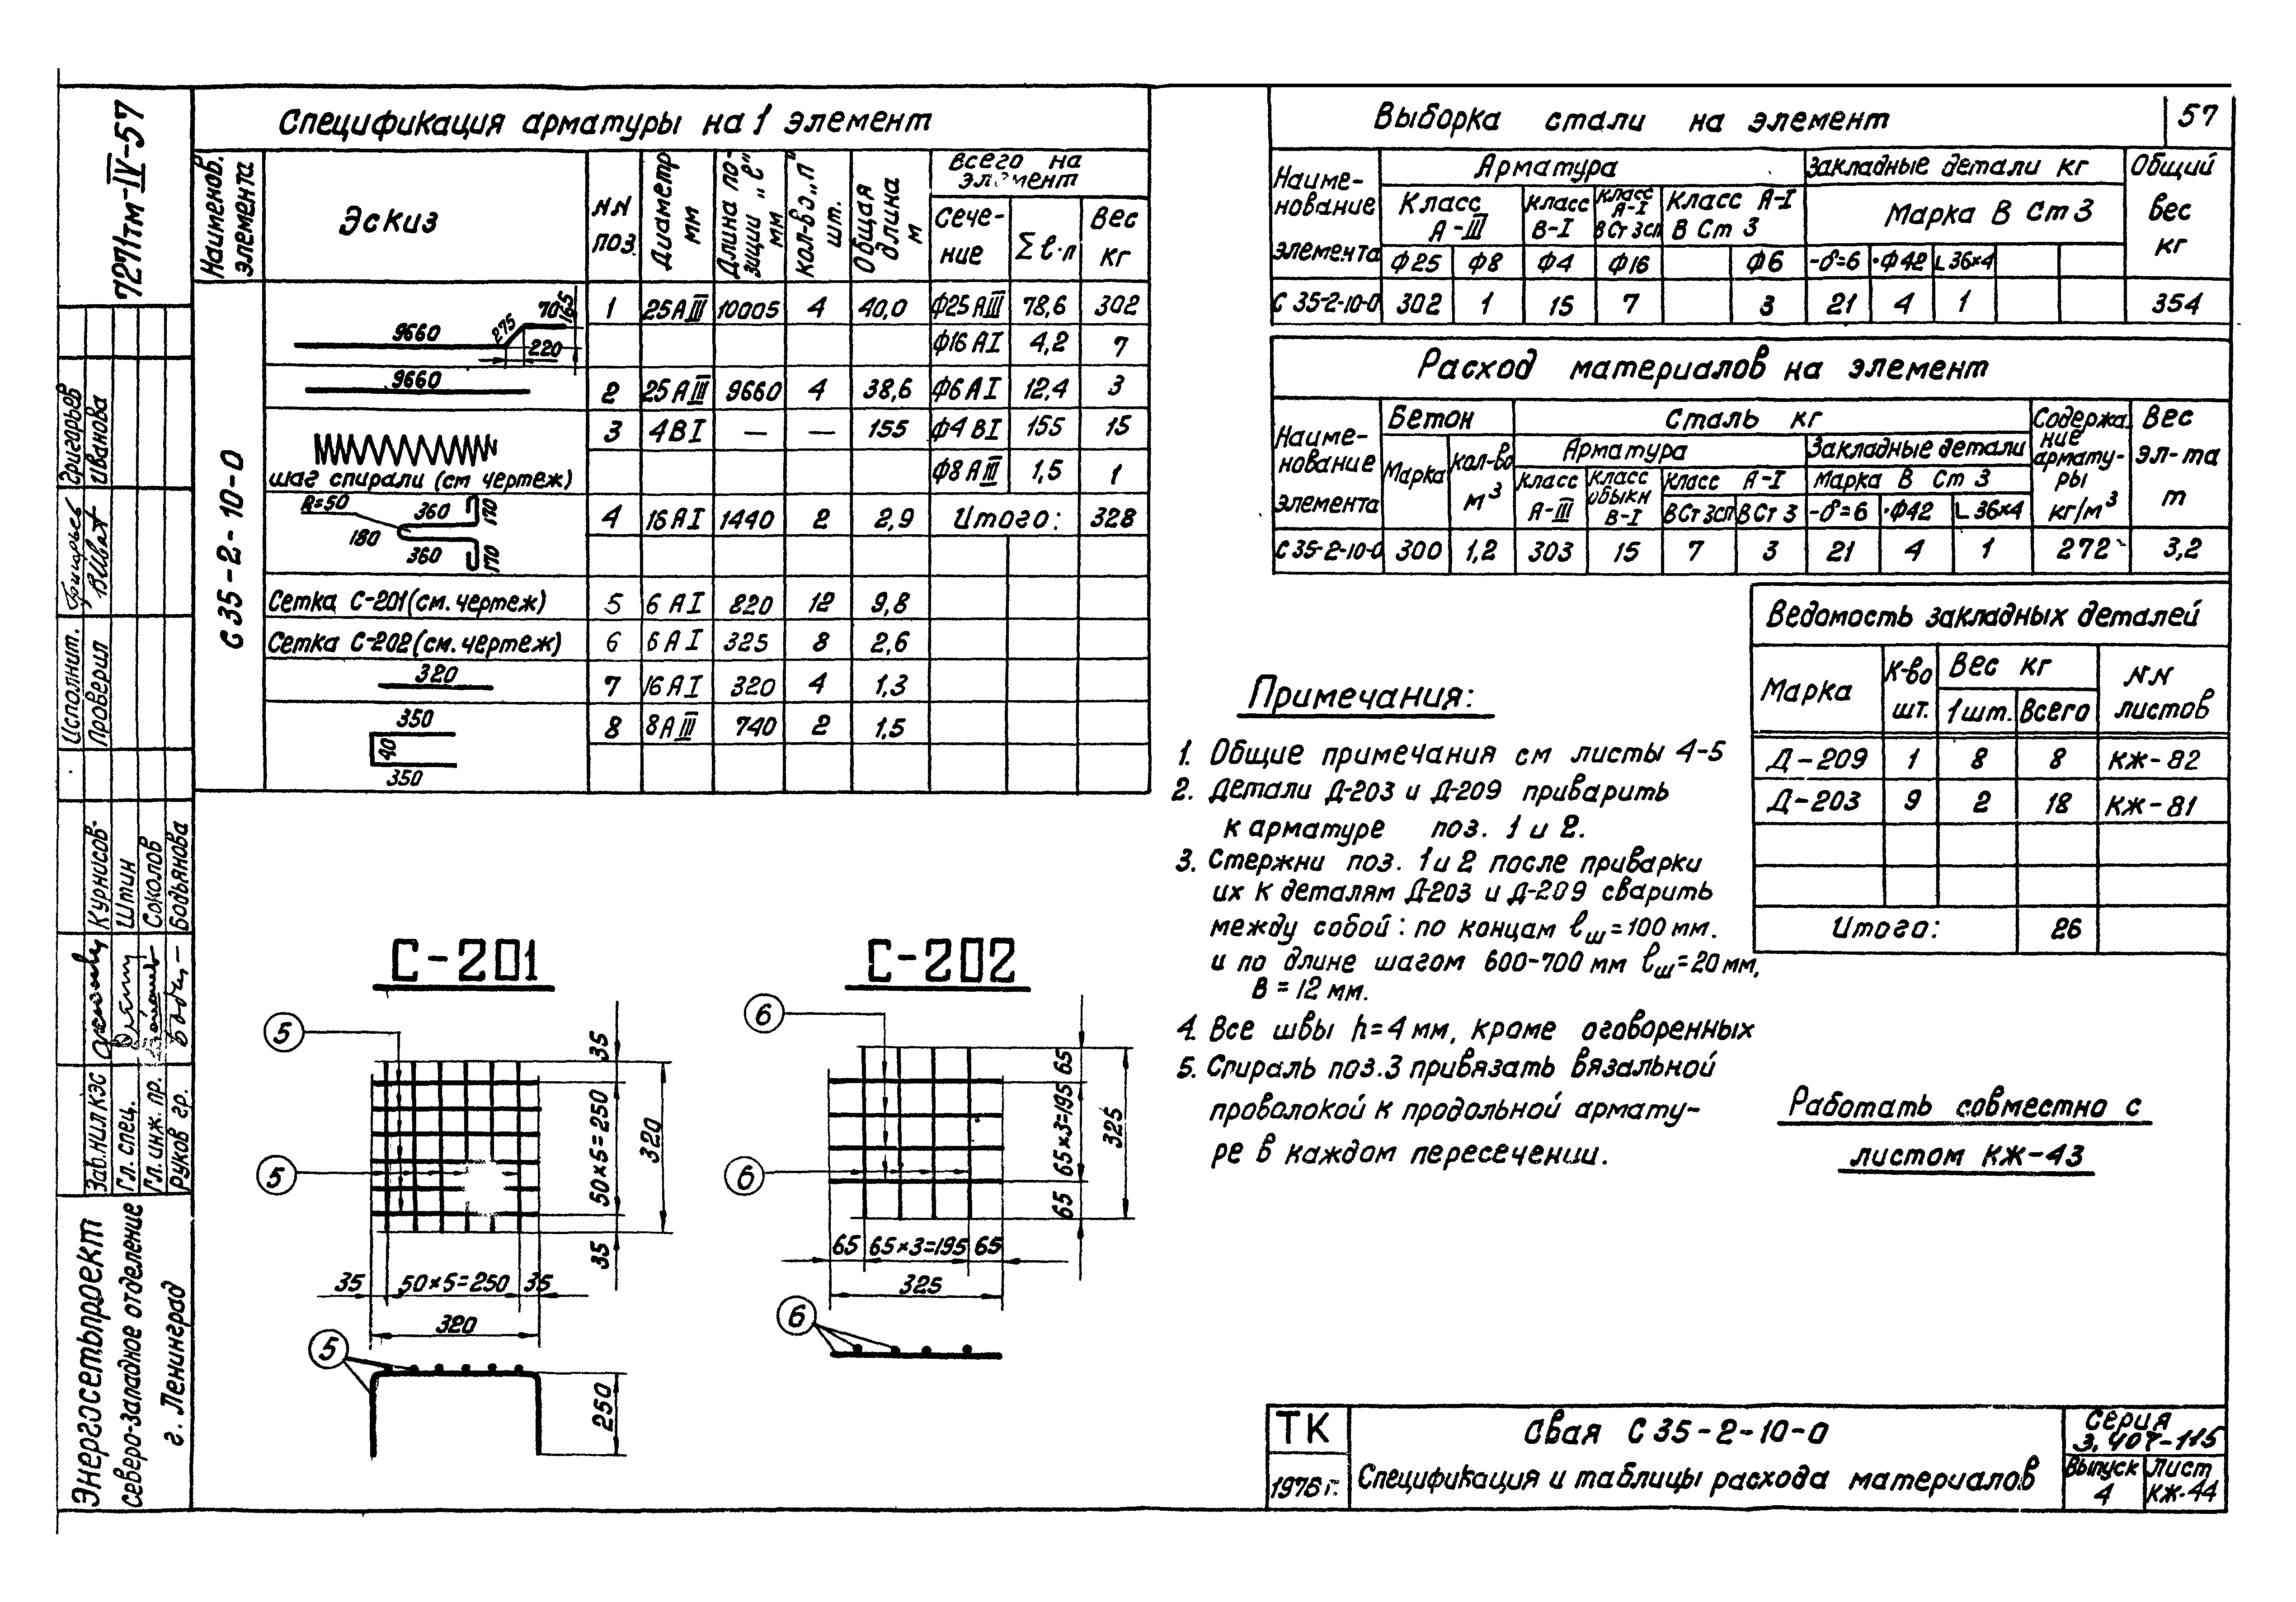 7271тм-IV-57
Григорьев
Иванова
Исполнит.
Проверил
Курнисов-
Штин
Соколов
Бодьянова
Зав.НИЛКЭС
Гл. спец.
Гл. инж. пр.
Руков гр.
Энергосетьпроект
Северо-западное отделение
г. Ленинград
Спецификация арматуры на 1 элемент
Наименов. элемента
Эскиз
NN поз.
Диаметр мм
Длина позиции „ℓ" мм
кол-во „п" шт.
Общая длина м
Всего на элемент
Сечение
Σℓ·п
Вес кг
С35-2-10-0
9660 275 70 165 220
1 25АIII 10005 4 40,0 Ф25АIII 78,6 302
Ф16АI 4,2 7
9660
2 25АIII 9660 4 38,6 Ф6АI 12,4 3
3 4ВI — — 155 Ф4ВI 155 15
шаг спирали (см чертеж)
Ф8АIII 1,5 1
R=50 360 170 180 360 170
4 16АI 1440 2 2,9 Итого: 328
Сетка С-201(см.чертеж) 5 6АI 820 12 9,8
Сетка С-202(см.чертеж) 6 6АI 325 8 2,6
320
7 16АI 320 4 1,3
350 40 350
8 8АIII 740 2 1,5
57
Выборка стали на элемент
Наименование элемента
Арматура
Закладные детали кг
Общий вес кг
Класс А-III
Класс В-I
Класс А-I ВСт3сп
Класс А-I ВСт3
Марка ВСт3
Ф25 Ф8 Ф4 Ф16 Ф6 -δ=6 •Ф42 L36×4
С 35-2-10-0 302 1 15 7 3 21 4 1 354
Расход материалов на элемент
Наименование элемента
Бетон
Сталь кг
Содержание арматуры кг/м³
Вес эл-та т
Марка
Кол-во м³
Арматура
Закладные детали
Класс А-III
Класс обыкн В-I
Класс А-I
Марка ВСт3
ВСт3сп ВСт3 -δ=6 •Ф42 L36×4
С35-2-10-0 300 1,2 303 15 7 3 21 4 1 272 3,2
Ведомость закладных деталей
Марка
К-во шт.
Вес кг
1шт. Всего
NN листов
Д-209 1 8 8 КЖ-82
Д-203 9 2 18 КЖ-81
Итого: 26
Примечания:
1. Общие примечания см листы 4-5
2. Детали Д-203 и Д-209 приварить
к арматуре поз. 1 и 2.
3. Стержни поз. 1 и 2 после приварки
их к деталям Д-203 и Д-209 сварить
между собой: по концам ℓш=100 мм.
и по длине шагом 600-700 мм ℓш=20мм,
В=12 мм.
4. Все швы h=4 мм, кроме оговоренных
5. Спираль поз.3 привязать вязальной
проволокой к продольной армату-
ре в каждом пересечении.
Работать совместно с
листом КЖ-43
С-201
5
5
35
50×5=250
320
35
35 50×5=250 35
320
5
250
С-202
6
6
65
65×3=195
325
65
65 65×3=195 65
325
6
ТК
1976г.
Свая С35-2-10-0
Спецификация и таблицы расхода материалов
Серия
3.407-115
Выпуск 4
Лист КЖ-44